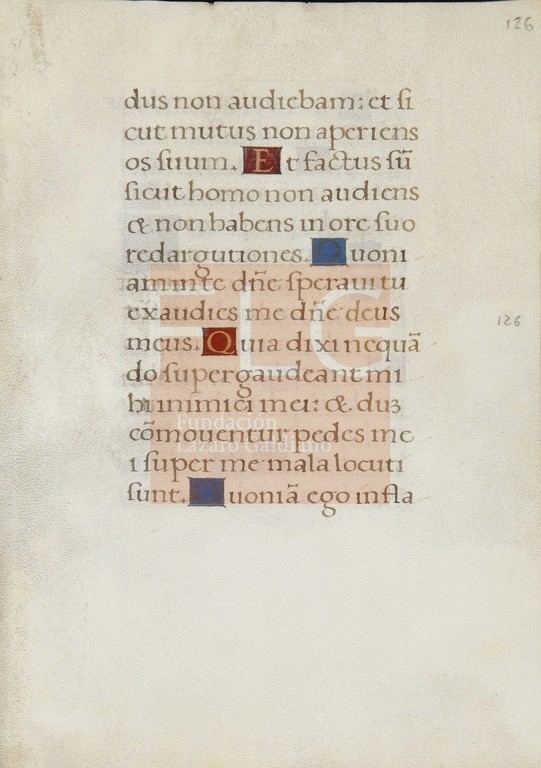 126
dus non audiebam: et ſi
cut mutus non aperiens
os ſuum. Et factus sũ
ſicut homo non audiens
& non habens in ore ſuo
redargutiones. Quoni
am in te dñe ſperaui tu
exaudies me dñe deus
meus. Quia dixi nequã
do ſupergaudeant mi
hi inimici mei: & duʒ
cõmouentur pedes me
i ſuper me mala locuti
ſunt. Quoniã ego in fla
126
FLG
Fundación
Lázaro Galdiano